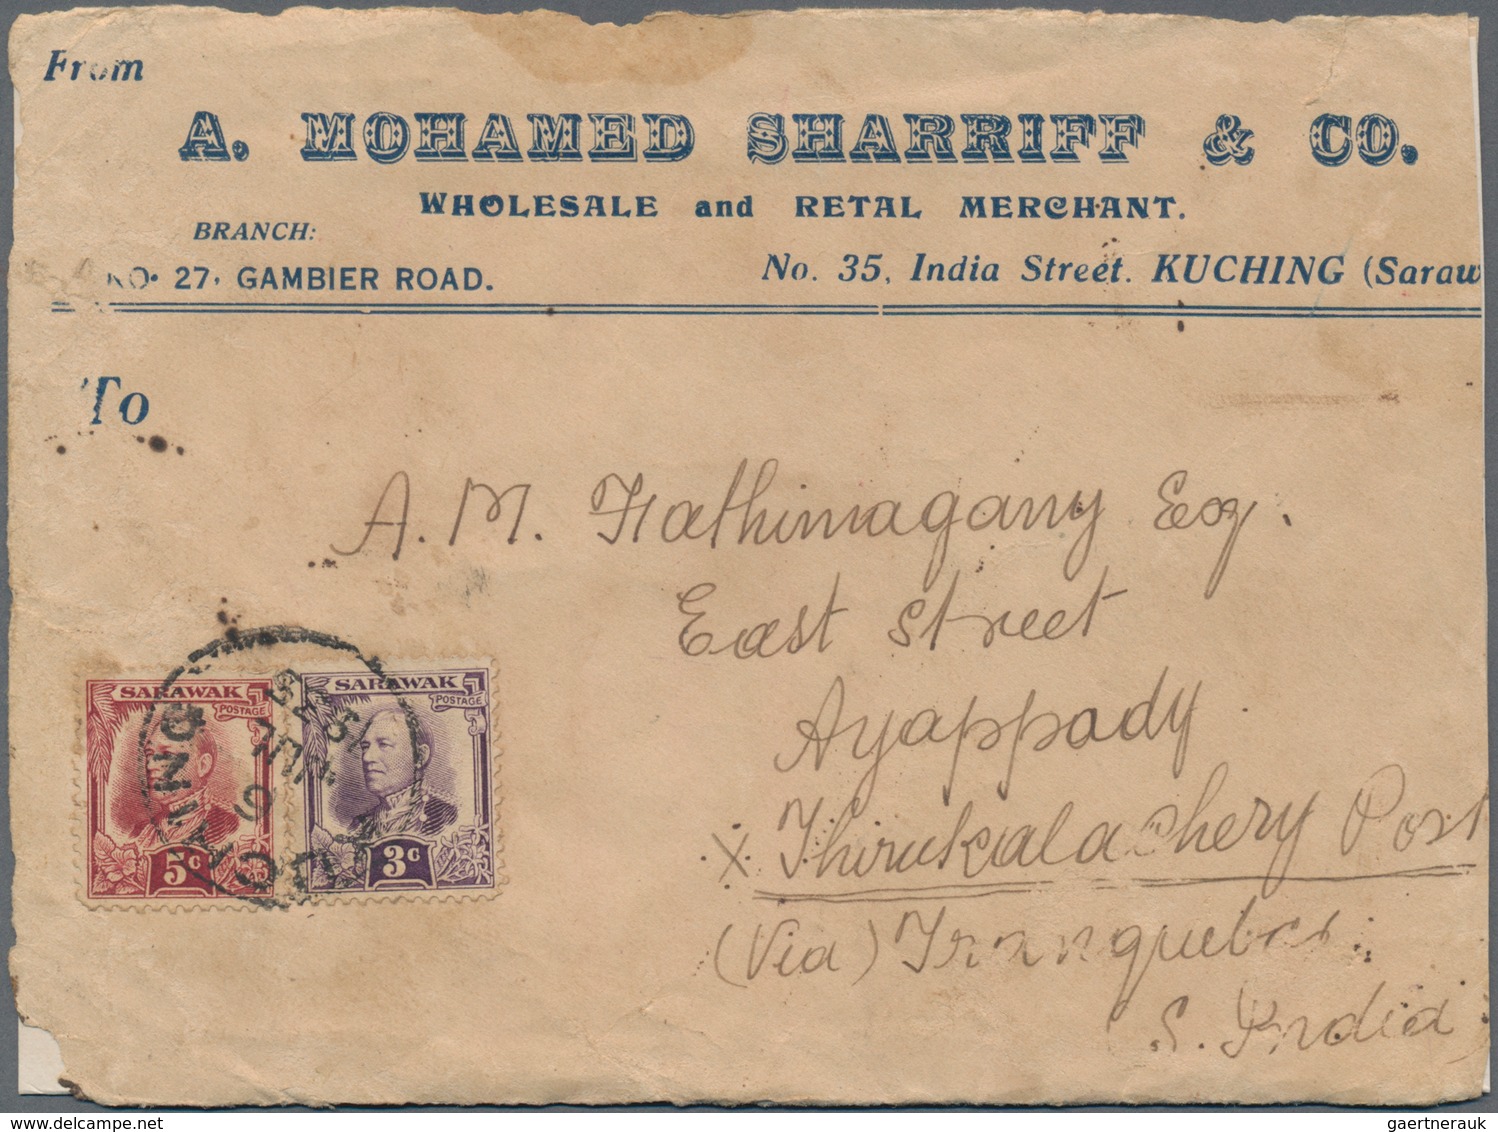 From
A. MOHAMED SHARRIFF & CO.
WHOLESALE and RETAL MERCHANT.
BRANCH:
NO. 27, GAMBIER ROAD.
No. 35, India Street. KUCHING (Saraw
To
A. M. Fathimagany Esq.
East Street
Ayappady
x Thirukalachery Post
(Via) Tranquebar.
S. India
SARAWAK
POSTAGE
5c
SARAWAK
POSTAGE
3c
KUCHING
gaertnerauk@delcampe.net